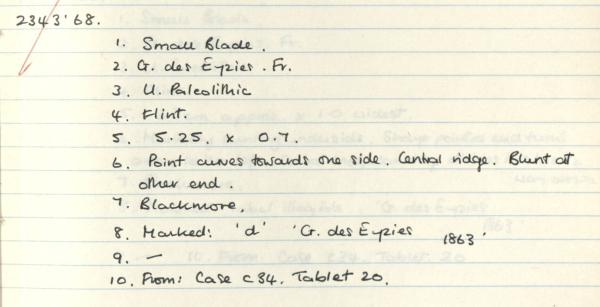 2343'68.
1. Small Blade.
2. Cr. des Eyzies. Fr.
3. U. Paleolithic
4. Flint.
5. 5.25. x 0.7.
6. Point curves towards one side. Central ridge. Blunt at
other end.
7. Blackmore.
8. Marked: 'd' 'Cr. des Eyzies 1863'
9. —
10. From: Case C34. Tablet 20.